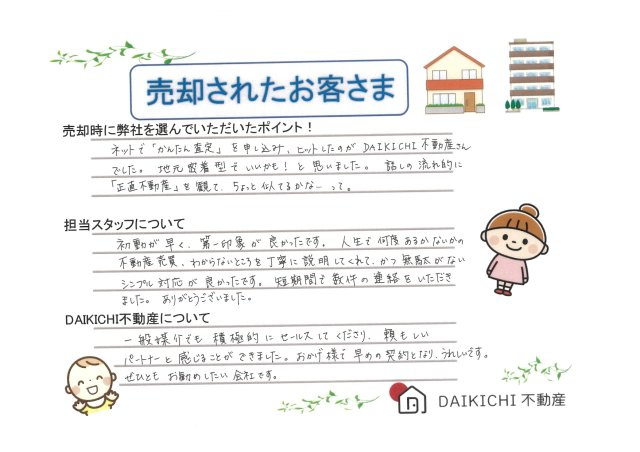 売却されたお客さま
売却時に弊社を選んでいただいたポイント！
ネットで「かんたん査定」を申し込み、ヒットしたのが DAIKICHI不動産さん
でした。地元密着型でいいかも！と思いました。話しの流れ的に
「正直不動産」を観て、ちょっと似てるかな…って。
担当スタッフについて
初動が早く、第一印象が良かったです。人生で何度あるかないかの
不動産売買、わからないところを丁寧に説明してくれて、かつ無駄がない
シンプル対応が良かったです。短期間で数件の連絡をいただき
ました。ありがとうございました。
DAIKICHI不動産について
一般媒介でも積極的にセールスしてくださり、頼もしい
パートナーと感じることができました。おかげ様で早めの契約となり、うれしいです。
ぜひともお勧めしたい会社です。
DAIKICHI 不動産